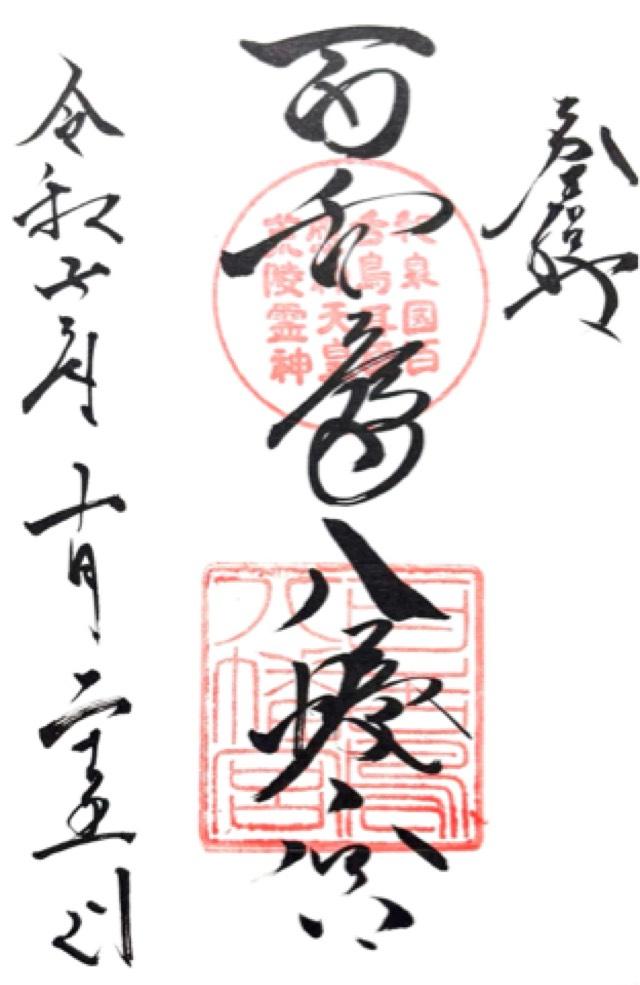 奉拝
百舌鳥八幡宮
和泉國百
舌鳥耳
天皇
陵霊神
百舌鳥
八幡宮
令和 年 十月 二十五日